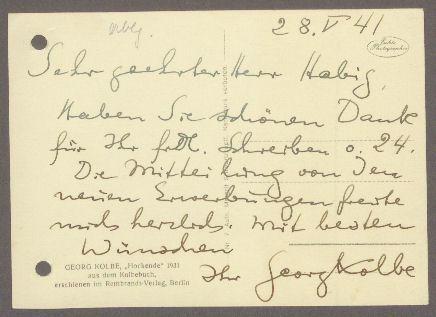 28. V 41
Echte Photographie
Sehr geehrter Herr Habig,
Haben Sie schönen Dank
für Ihr frdl. Schreiben v. 24.
Die Mitteilung von den
neuen Erwerbungen freute
mich herzlich. Mit besten
Wünschen
Ihr Georg Kolbe
GEORG KOLBE, „Hockende" 1931
aus dem Kolbebuch,
erschienen im Rembrandt-Verlag, Berlin